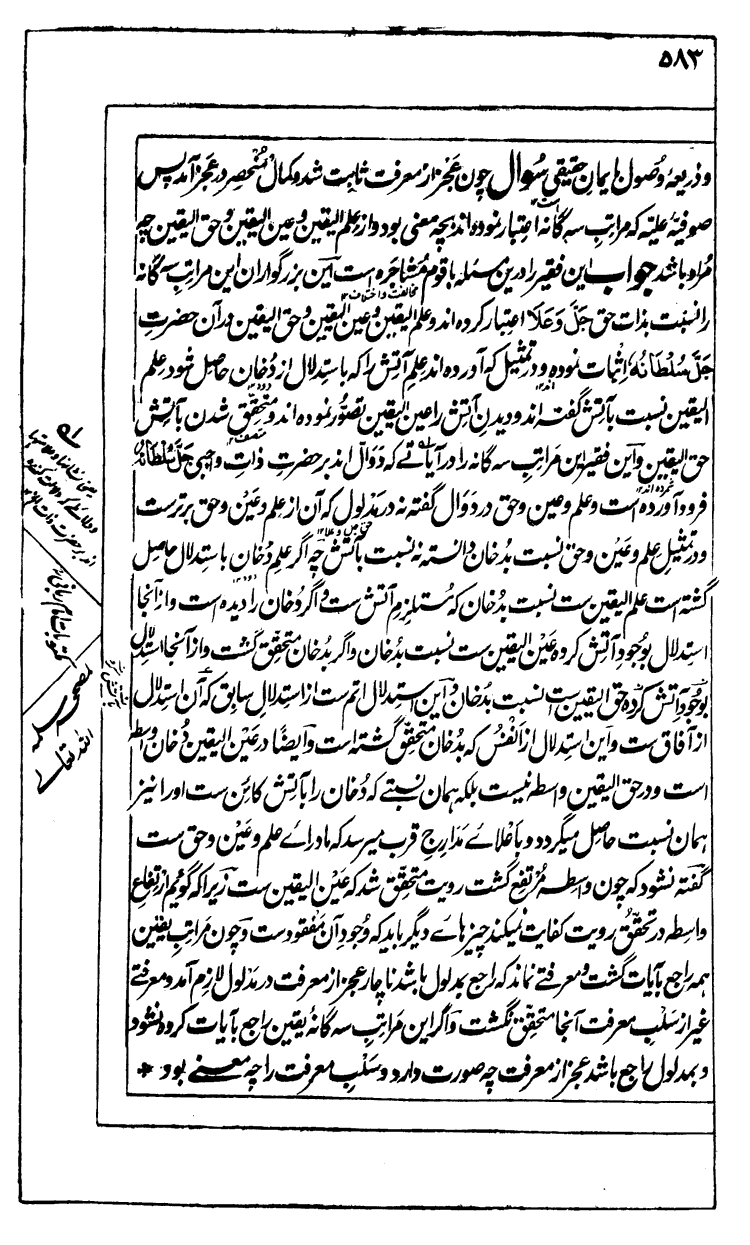 ۵۸۳
و ذریعهٔ وصول ایمان حقیقی سُوال چون عجز از معرفت ثابت شد و کمال منحصر در عجز آمد پس
صوفیهٔ علیّه که مراتب سه گانه اعتبار نموده اند بچه معنی بود و از علم الیقین و عین الیقین و حق الیقین چه
مُراد باشد جواب این فقیر را درین مسئله با قوم مُشاجره است این بزرگواران این مراتب سه گانه
مخالفت و اختلاف ۱۲
را نسبت بذات حق جَلَّ وَعَلَا اعتبار کرده اند و علم الیقین و عین الیقین و حق الیقین در آن حضرت
جَلَّ سُلْطَانُهُ اِثبات نموده و در تمثیل که آورده اند علم آتش را که باستدلال از دُخان حاصل شود علم
الیقین نسبت بآتش گفته اند و دیدن آتش را عین الیقین تصوّر نموده اند و متحقّق شدن بآتش
حق الیقین و این فقیر این مراتب سه گانه را در آیاتے که دَوَالّ اند بر حضرت ذات واجبی جَلَّ سُلْطَانُهُ
فرود آورده است و علم و عین و حق در دَوَال گفته نه در مدلول که آن از علم و عین و حق برترست
و در تمثیل علم و عین و حق نسبت بدُخان دانسته نه نسبت بآتش چه اگر علم دُخان باستدلال حاصل
گشته است علم الیقین ست نسبت بدُخان که مُستلزم آتش ست و اگر دُخان را دیده است و از آنجا
استدلال بوجود آتش کرده عَین الیقین ست نسبت بدُخان و اگر بدُخان متحقق گشت و از آنجا استدلال
بوجود آتش کرده حق الیقین ست نسبت بدُخان و این استدلال اتم ست از استدلال سابق که آن استدلال
از آفاق ست و این استدلال از اَنْفُس که بدُخان متحقّق گشته است و اَیضًا در عین الیقین دُخان واسطه
است و در حق الیقین واسطه نیست بلکه همان نسبتے که دُخان را بآتش کائن ست او را نیز
همان نسبت حاصل میگردد و باَعْلائے مَدارِج قرب میرسد که ماورائے علم و عین و حق ست
گفته نشود که چون واسطه مُرتفع گشت رویت متحقّق شد که عین الیقین ست زیرا که گوئیم ارتفاع
واسطه در تحقّق رویت کفایت نمیکند چیز هائے دیگر باید که وجود آن مفقودست و چون مراتب یقین
همه راجع بآیات گشت و معرفتے نماند که راجع بمدلول باشد ناچار عجز از معرفت در مدلول لازم آمد و معرفتے
غیر از سلب معرفت آنجا متحقّق نگشت و اگر این مراتب سه گانهٔ یقین راجع بآیات کرده نشود
و بمدلول راجع باشد عجز از معرفت چه صورت دارد و سلب معرفت را چه معنے بود *
مکتوبات امام ربانی
مصحح سلمه
الله تعالے